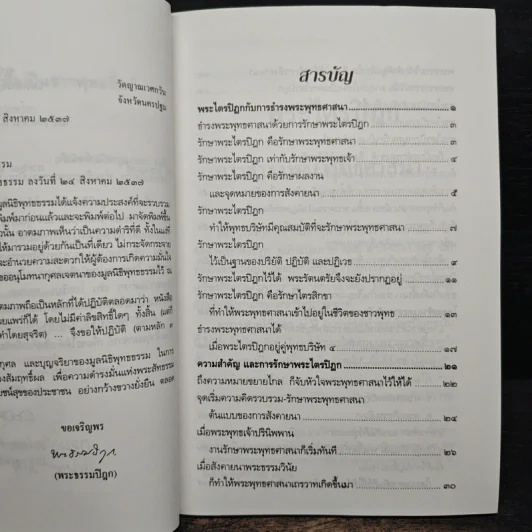 วัดญาณเวศกวัน
จังหวัดนครปฐม
สิงหาคม ๒๕๓๗
รรม
ธรรม ลงวันที่ ๒๔ สิงหาคม ๒๕๓๗
มูลนิธิพุทธธรรมได้แจ้งความประสงค์ที่จะรวบรวม
พิมพ์มาก่อนแล้วและจะพิมพ์ต่อไป มาจัดพิมพ์ขึ้น
นั้น อาตมภาพเห็นว่าเป็นความดำริที่ดี
ให้มารวมอยู่ด้วยกันเป็นที่เดียว ไม่กระจัดกระจาย
อำนวยความสะดวกให้ผู้ต้องการเกิดความมั่นใจ
ขออนุโมทนากุศลเจตนาของมูลนิธิพุทธธรรมไว้ ณ
ตมภาพถือเป็นหลักที่ได้ปฏิบัติตลอดมาว่า หนังสือ
ยแพร่ก็ได้ โดยไม่มีค่าลิขสิทธิ์ใดๆ ทั้งสิ้น
ทำโดยสุจริต) ... จึงขอให้ปฏิบัติ (ตามหลัก
กุศล และบุญจริยาของมูลนิธิพุทธธรรม ในการ
งสัมฤทธิ์ผล เพื่อความดำรงมั่นแห่งพระสัทธรรม
ยชน์สุขของประชาชน อย่างกว้างขวางยั่งยืน ตลอด
ขอเจริญพร
(พระธรรมปิฎก)
สารบัญ
พระไตรปิฎกกับการธำรงพระพุทธศาสนา ๑
ธำรงพระพุทธศาสนาด้วยการรักษาพระไตรปิฎก ๓
รักษาพระไตรปิฎก คือรักษาพระพุทธศาสนา ๓
รักษาพระไตรปิฎก เท่ากับรักษาพระพุทธเจ้า ๔
รักษาพระไตรปิฎก คือรักษาผลงาน
และจุดหมายของการสังคายนา ๕
รักษาพระไตรปิฎก
ทำให้พุทธบริษัทมีคุณสมบัติที่จะรักษาพระพุทธศาสนา ๗
รักษาพระไตรปิฎก
ไว้เป็นฐานของปริยัติ ปฏิบัติ และปฏิเวธ ๙
รักษาพระไตรปิฎกไว้ได้ พระรัตนตรัยจึงจะยังปรากฏอยู่ ๑๑
รักษาพระไตรปิฎก คือรักษาไตรสิกขา
ที่ทำให้พระพุทธศาสนาเข้าไปอยู่ในชีวิตของชาวพุทธ ๑๓
ธำรงพระพุทธศาสนาได้
เมื่อพระไตรปิฎกอยู่คู่พุทธบริษัท ๔ ๑๗
ความสำคัญ และการรักษาพระไตรปิฎก ๒๑
ถึงความหมายขยายไกล ก็จับหัวใจพระพุทธศาสนาไว้ให้ได้ ๒๒
จุดเริ่มความคิดรวบรวม-รักษาพระพุทธศาสนา
ต้นแบบของการสังคายนา ๒๔
เมื่อพระพุทธเจ้าปรินิพพาน
งานรักษาพระพุทธศาสนาก็เริ่มทันที ๒๖
เมื่อสังคายนาพระธรรมวินัย
ก็ทำให้พระพุทธศาสนาเถรวาทเกิดขึ้นมา ๓๐